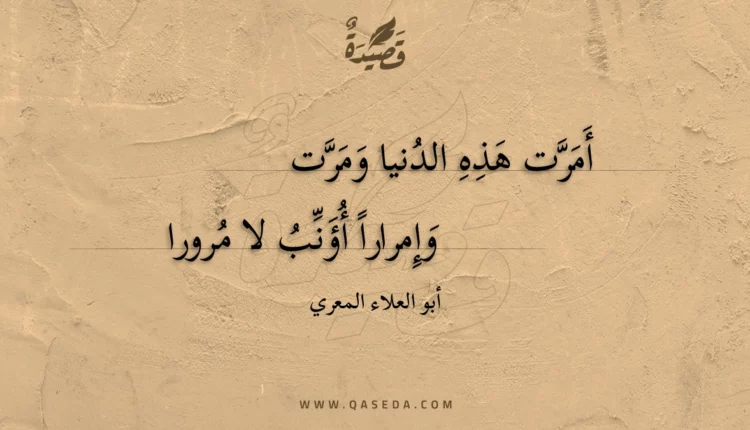 قَصِيدَةٌ
أَمَرَّت هَذِهِ الدُنيا وَمَرَّت
وَإِمراراً أُؤَنِّبُ لا مُرورا
أبو العلاء المعري
WWW.QASEDA.COM